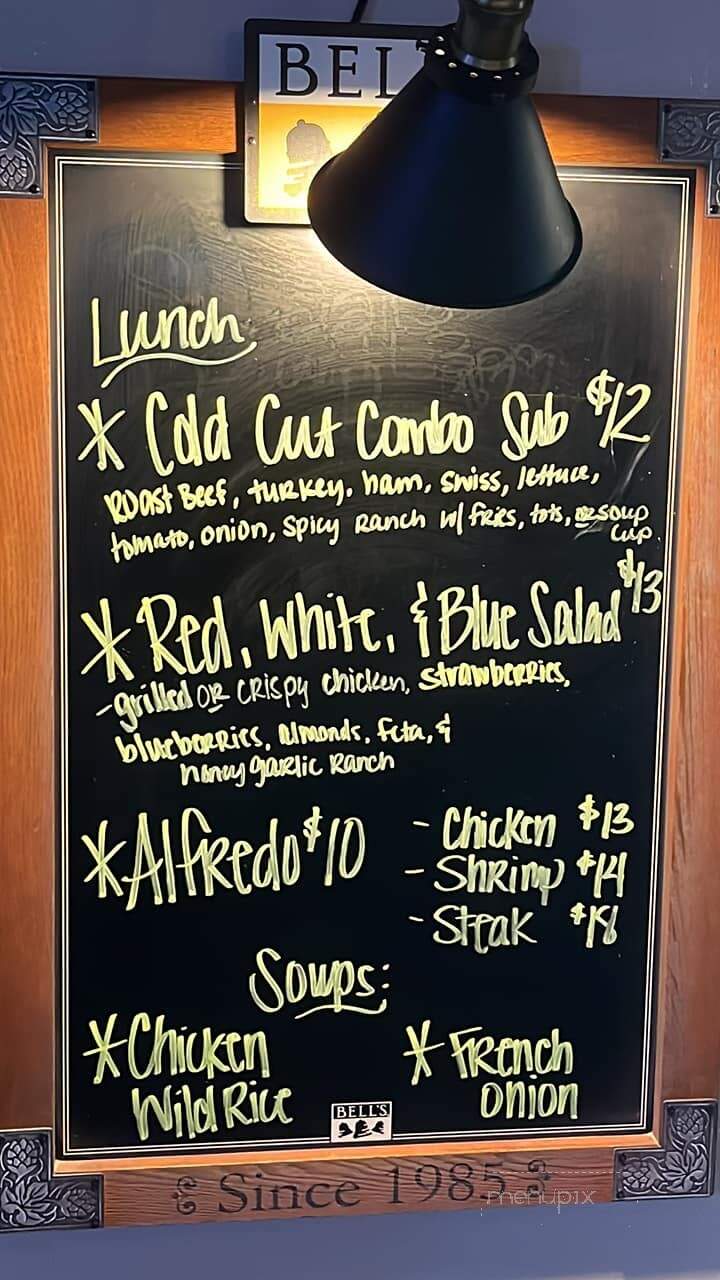 BEL
Lunch
* Cold Cut Combo Sub $12
Roast Beef, turkey, ham, swiss, lettuce,
tomato, onion, spicy ranch w/ fries, tots, or soup
cup.
* Red, White, & Blue Salad $13
- grilled or crispy chicken, strawberries,
blueberries, almonds, feta, &
honey garlic ranch
* Alfredo $10
- Chicken $13
- Shrimp $14
- Steak $18
Soups:
* Chicken
Wild Rice
* French
onion
BELL'S
Since 1985
menupix